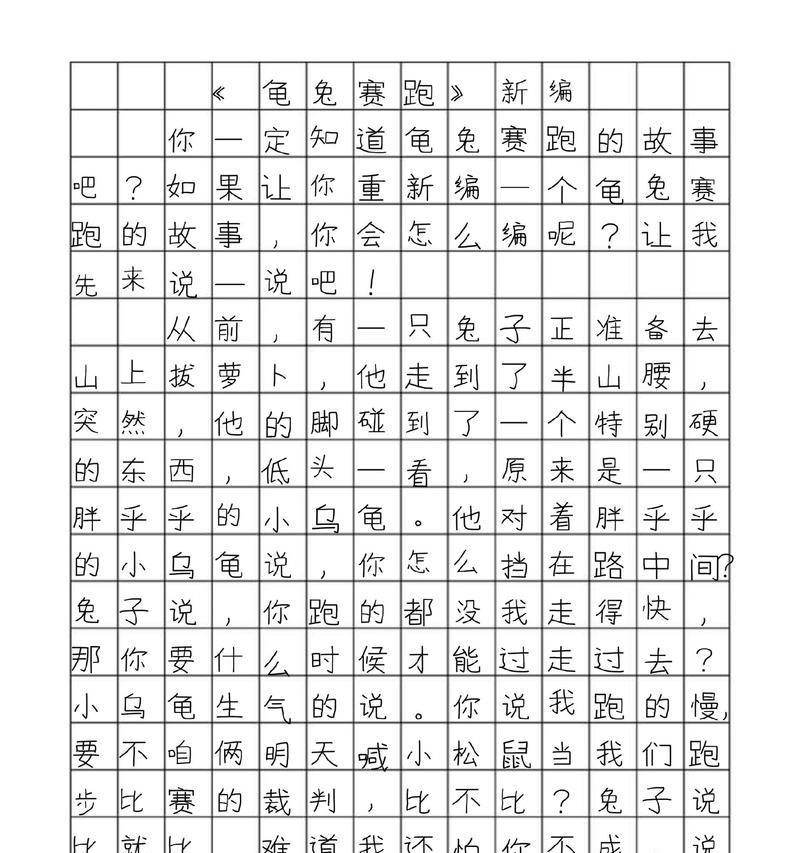 《龟兔赛跑》新编
你一定知道龟兔赛跑的故事
吧？如果让你重新编一个龟兔赛
跑的故事，你会怎么编呢？让我
先来说一说吧！
从前，有一只兔子正准备去
山上拔萝卜，他走到了半山腰，
突然，他的脚碰到了一个特别硬
的东西，低头一看，原来是一只
胖乎乎的小乌龟。他对着胖乎乎
的小乌龟说，你怎么挡在路中间？
兔子说，你跑的都没我走得快，
那你要什么时候才能过走过去？
小乌龟生气的说。你说我跑的慢，
要不咱俩明天喊小松鼠当我们跑
步比赛的裁判，比不比？兔子说
比就比 难道我还怕你不成 说